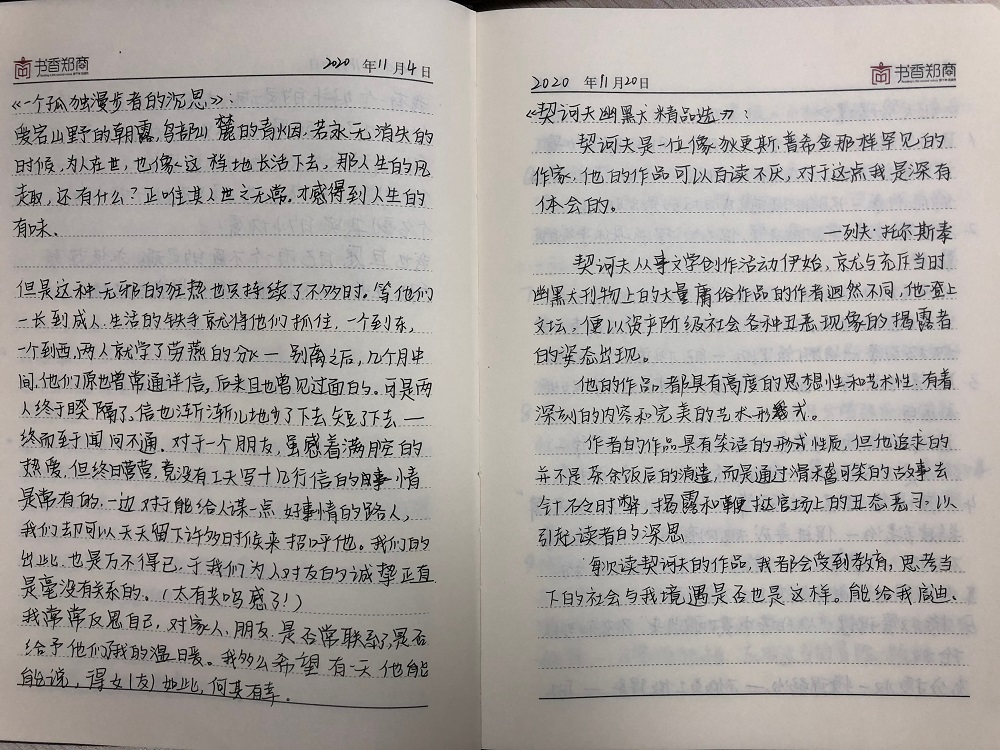 书香郑商
2020 年11月4日
《一个孤独漫步者的沉思》:
爱宕山野的朝露,鸟部山麓的青烟,若永无消失的
时候,为人在世,也像这样地长活下去,那人生的风
趣,还有什么?正唯其人世之无常,才感得到人生的
有味、
但是这种无邪的狂热也只持续了不多时。等他们
一长到成人,生活的铁手就将他们抓住,一个到东,
一个到西,两人就学了劳燕的分飞一别离之后,几个月中
间,他们原也曾常通详信,后来且也曾见过面的。可是两
人终于暌隔了,信也渐渐儿地少了下去短了下去—
终而至于闻问不通。对于一个朋友,虽感着满腔的
热爱,但终日营营,竟没有工夫写十几行信的事情
是常有的,一边对于能给人谋一点好事情的路人,
我们却可以天天留下许多时候来招呼他。我们的
出此,也是万不得已,于我们为人对友的诚挚正直
是毫没有关系的。(太有共鸣感了!)
我常常反思自己,对家人,朋友,是否常联系了,是否
给予他们我的温暖。我多么希望有一天他能
说,得女(友)如此,何其有幸。
书香郑商
2020 年11月20日
《契诃夫幽默精品选》:
契诃夫是一位像狄更斯、普希金那样罕见的
作家,他的作品可以百读不厌,对于这点我是深有
体会的。
—列夫·托尔斯泰
契诃夫从事文学创作活动伊始,就与充斥当时
幽默刊物上的大量庸俗作品的作者迥然不同,他登上
文坛,便以资产阶级社会各种丑恶现像的揭露者
的姿态出现。
他的作品都具有高度的思想性和艺术性,有着
深刻的内容和完美的艺术形式。
作者的作品具有笑话的形式性质,但他追求的
并不是茶余饭后的消遣,而是通过滑稽可笑的故事去
针砭时弊,揭露和鞭挞官场上的丑态恶习,以
引起读者的深思
每次读契诃夫的作品,我都会受到教育,思考当
下的社会与我境遇是否也是这样。能给我启迪、